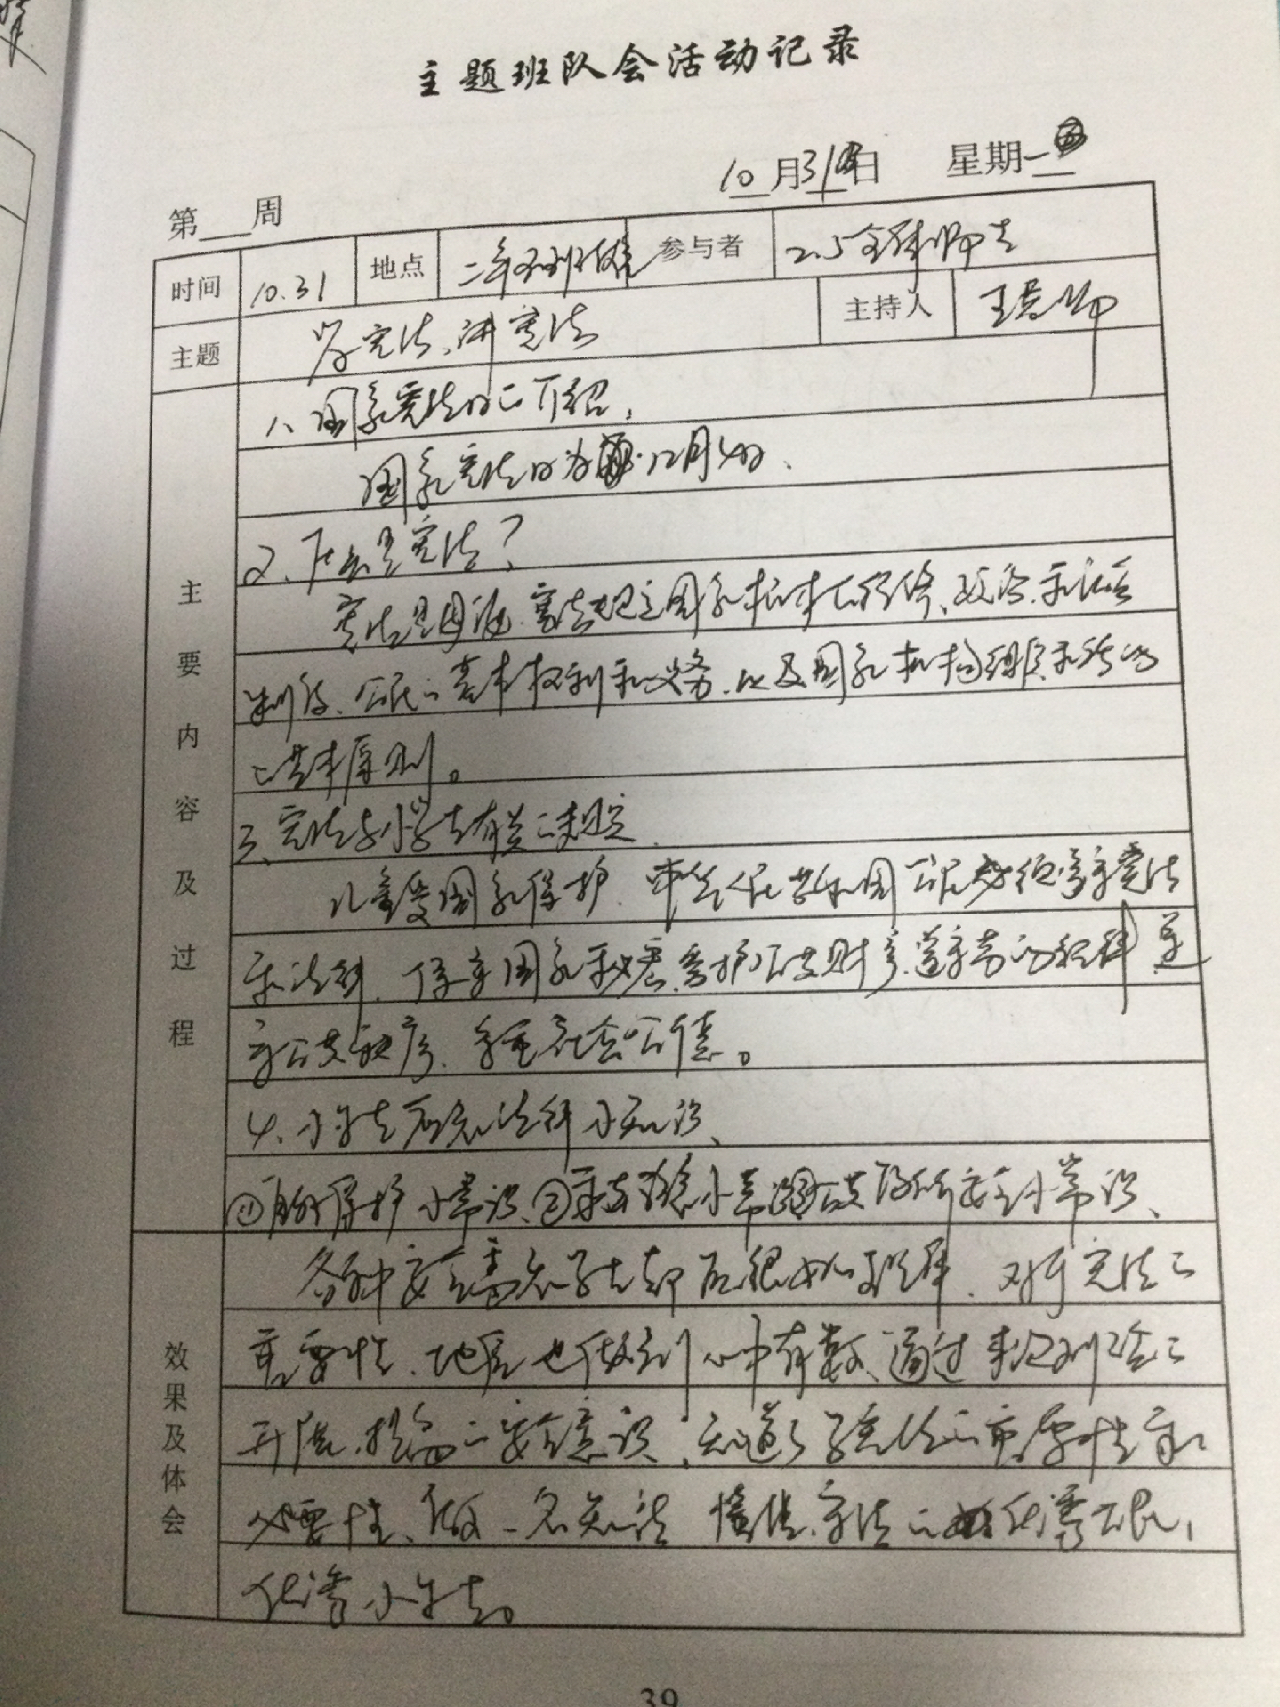 主题班队会活动记录
10月31日 星期一
第 周
时间 10.31 地点 二年五班教室 参与者 2.5全体师生
主题 学宪法、讲宪法 主持人 王老师
主要内容及过程
1、国家宪法日的介绍,
国家宪法日为12月4日、
2、什么是宪法?
宪法是母法,宪法规定国家根本的任务、政治、和社会
制度、公民的基本权利和义务、以及国家机构组织和活动
的基本原则。
三、宪法与小学生有关的规定
儿童受国家保护、中华人民共和国公民必须遵守宪法
和法律、保守国家秘密、爱护公共财产、遵守劳动纪律、遵
守公共秩序、尊重社会公德。
4、小学生应知法律小知识、
①自我保护小常识、②小常识③公共场所安全小常识、
效果及体会
各种安全需知学生都应很好的理解、对于宪法的
重要性、他们也做到心中有数、通过本次
开展、提高的安全意识、知道了学宪法的重要性和
必要性、做一名知法 懂法、守法的优秀公民,
优秀小学生。
39